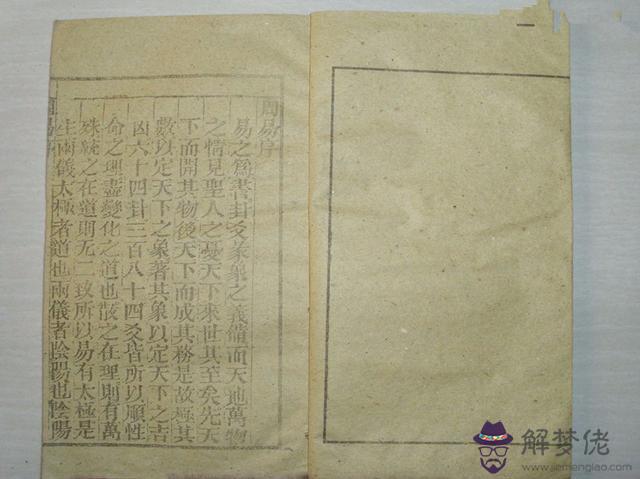 周易序
易之爲書卦爻彖象之義備而天地萬物
之情見聖人之憂天下來世其至矣先天
下而開其物後天下而成其務是故極其
數以定天下之象著其象以定天下之吉
凶六十四卦三百八十四爻皆所以順性
命之理盡變化之道也散之在理則有萬
殊統之在道則无二致所以易有太極是
生兩儀太極者道也兩儀者陰陽也陰陽
周易序
解梦佬
www.jiemenglao.com